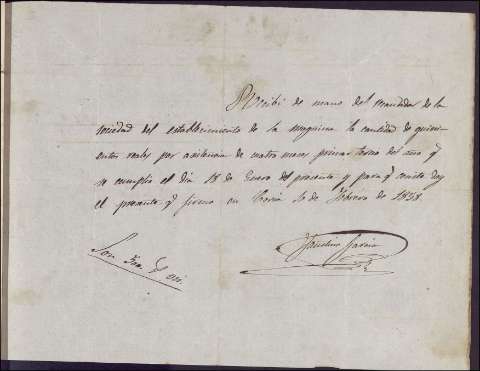 Recibi de mano del mandador de la
sociedad del establecimiento de la maquina la cantidad de quini-
entos reales por asistencia de cuatro meses primer tercio del año q
se cumplio el dia 18 de Enero del presente y para q conste doy
el presente q firmo en Coria 6 de Febrero de 1838
Faustino Garcia
Son